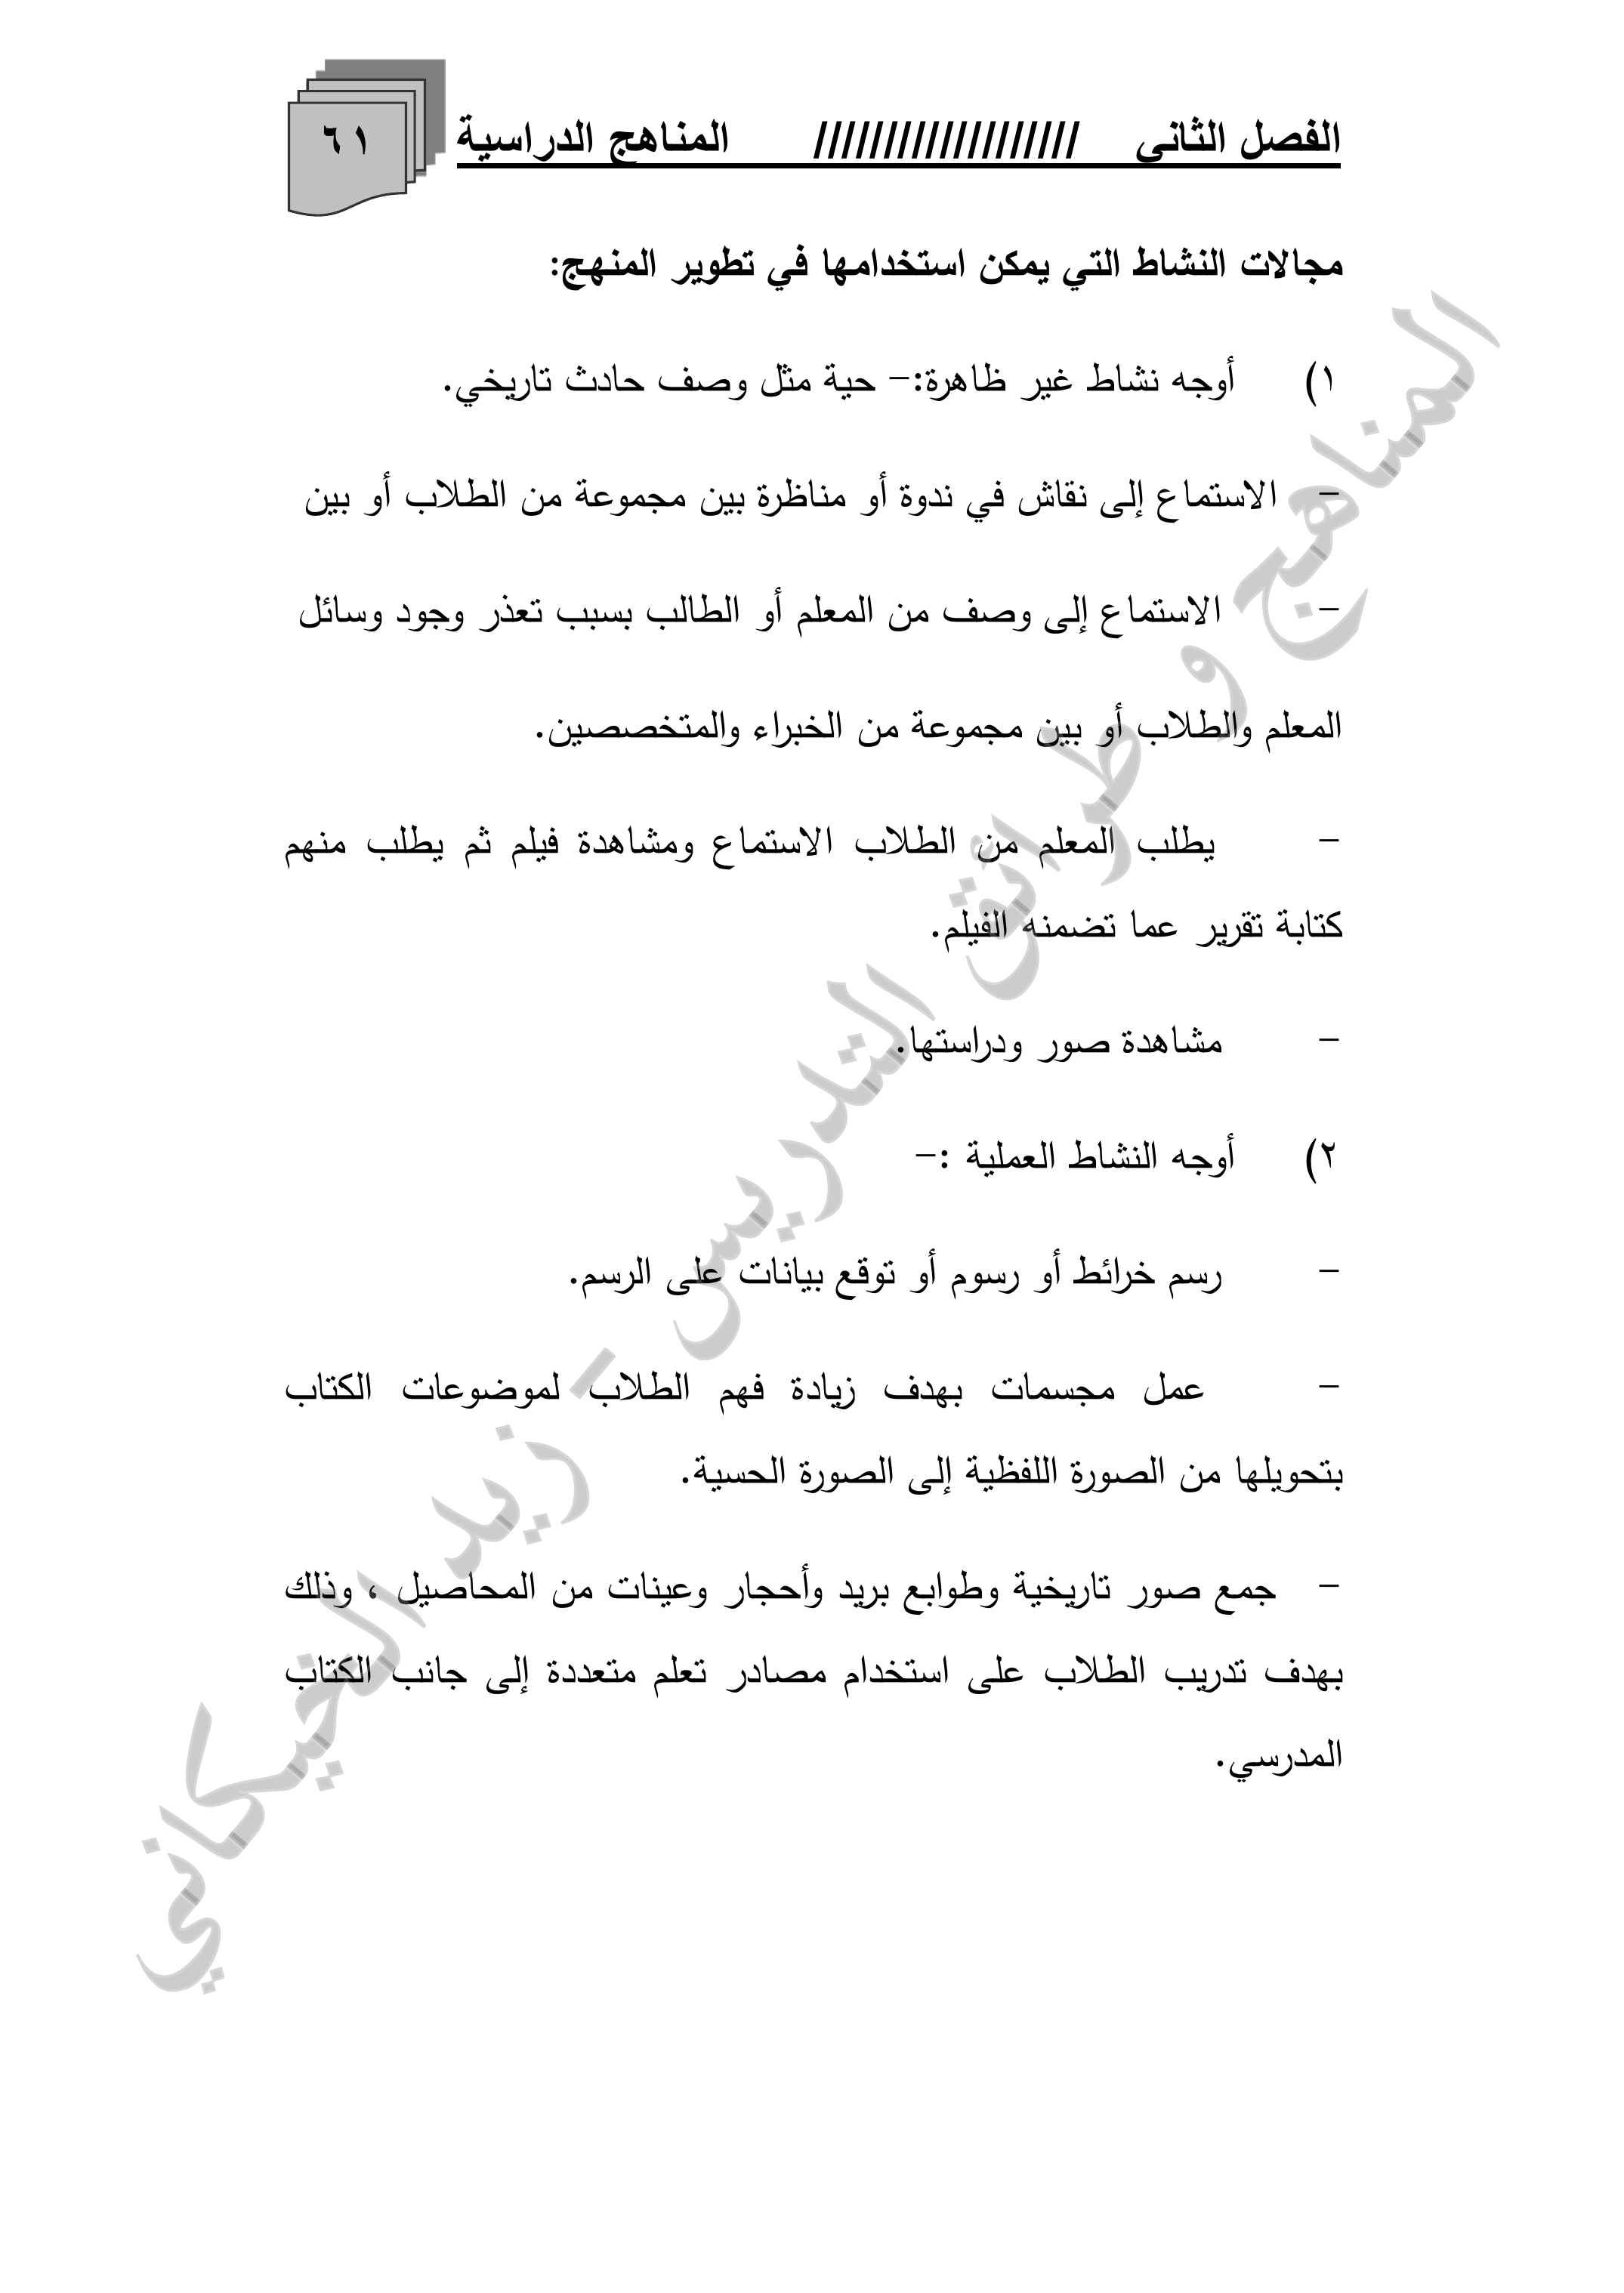 الفصل الثاني /////////////////// المناهج الدراسية ٦١
مجالات النشاط التي يمكن استخدامها في تطوير المنهج:
١) أوجه نشاط غير ظاهرة:- حية مثل وصف حادث تاريخي.
- الاستماع إلى نقاش في ندوة أو مناظرة بين مجموعة من الطلاب أو بين
- الاستماع إلى وصف من المعلم أو الطالب بسبب تعذر وجود وسائل
المعلم والطلاب أو بين مجموعة من الخبراء والمتخصصين.
- يطلب المعلم من الطلاب الاستماع ومشاهدة فيلم ثم يطلب منهم
كتابة تقرير عما تضمنه الفيلم.
- مشاهدة صور ودراستها.
٢) أوجه النشاط العملية :-
- رسم خرائط أو رسوم أو توقع بيانات على الرسم.
- عمل مجسمات بهدف زيادة فهم الطلاب لموضوعات الكتاب
بتحويلها من الصورة اللفظية إلى الصورة الحسية.
- جمع صور تاريخية وطوابع بريد وأحجار وعينات من المحاصيل ، وذلك
بهدف تدريب الطلاب على استخدام مصادر تعلم متعددة إلى جانب الكتاب
المدرسي.
المناهج و طرائق التدريس - زيد الخيكاني